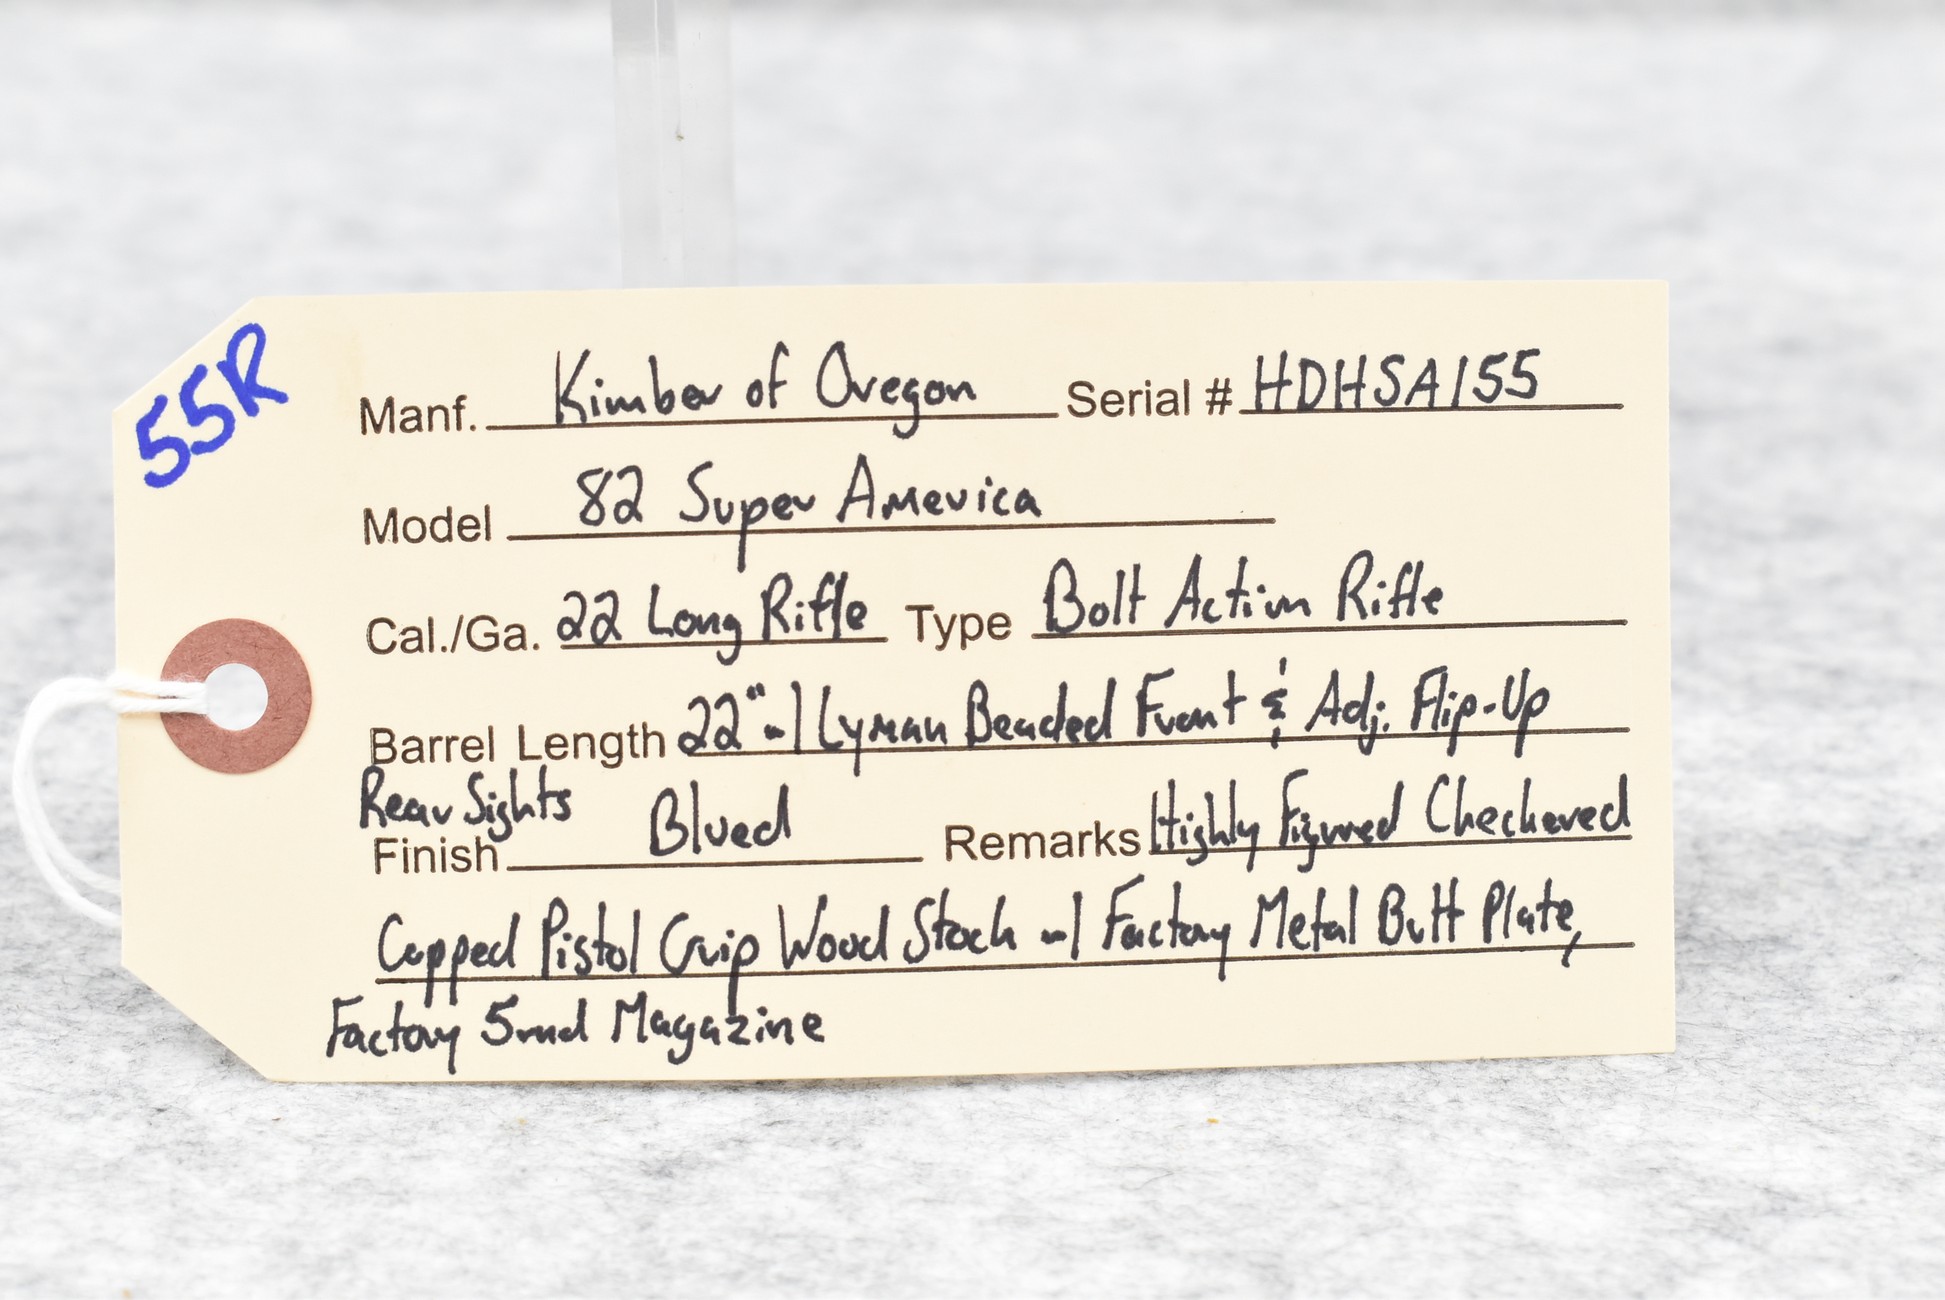 55R
Manf. Kimber of Oregon Serial # HDHSA155
Model 82 Super America
Cal./Ga. 22 Long Rifle Type Bolt Action Rifle
Barrel Length 22" w/ Lyman Beaded Front & Adj. Flip-Up
Rear Sights
Finish Blued Remarks Highly Figured Checkered
Capped Pistol Grip Wood Stock w/ Factory Metal Butt Plate,
Factory 5rnd Magazine